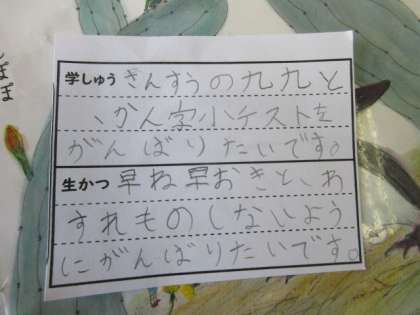 学しゅう ぎんすうの九九と
、かん字小テストを
がんばりたいです。
生かつ 早ね早おきと、わ
すれものしないよう
にがんばりたいです。